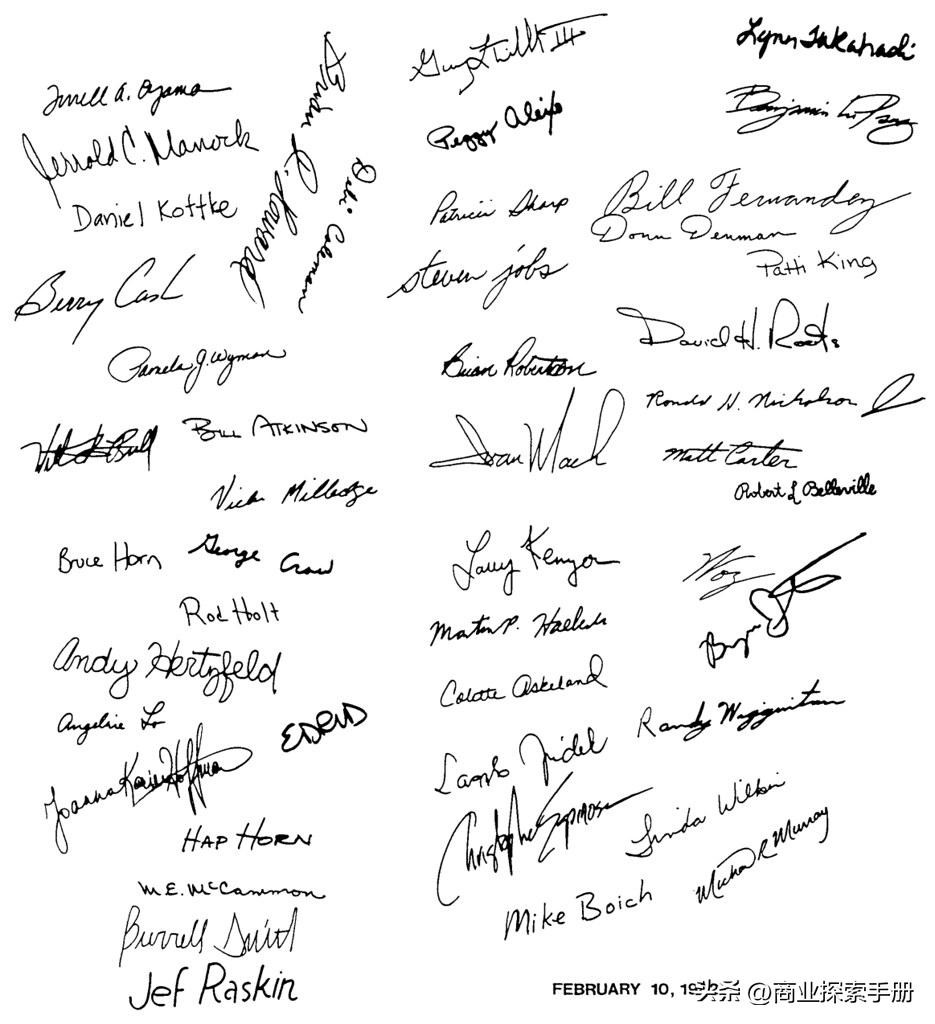 Terrell A. Oyama
Jerrold C. Manock
Daniel Kottke
Brian R. Howard
"Deb" Coleman
Berry Cash
Pamela G. Wyman
Bill Atkinson
Vicki Milledge
Bruce Horn
George Crow
Rod Holt
Andy Hertzfeld
Angeline Lo
EDRUD
Joanna Karin Hoffman
HAP HORN
M.E. McCammon
Burrell Smith
Jef Raskin
III
Peggy Alexio
Patricia Sharp
steven jobs
Brian Robertson
Ivan Mach
Larry Kenyon
Martin P. Haeberli
Colette Askeland
Christopher Espinosa
Mike Boich
Lynn Takahashi
Benjamin
Bill Fernandez
Donn Denman
Patti King
David H. Roots
Ronald H. Nicholson Jr
Matt Carter
Robert L Belleville
Woz
Bryan
Randy Wigginton
Linda Wilkin
Michael R Murray
FEBRUARY 10,
头条 @商业探索手册